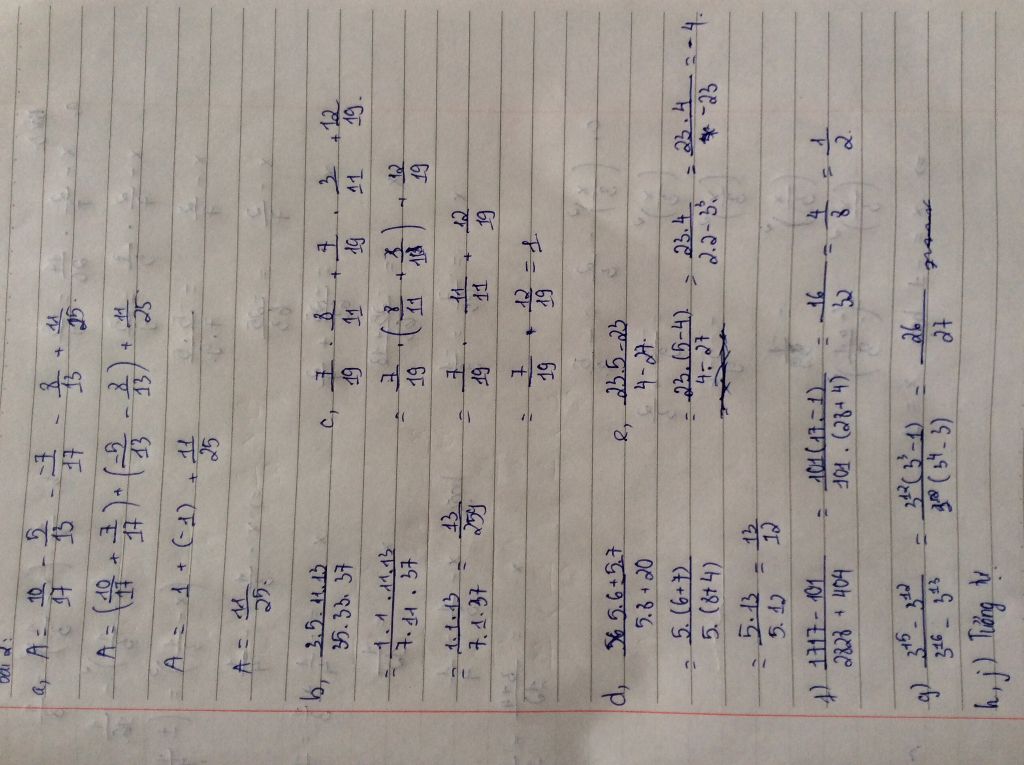 Bài 2:
a, A = 10/17 - 5/13 - -7/17 - 8/13 + 11/25.
A = (10/17 + 7/17) + (-5/13 - 8/13) + 11/25
A = 1 + (-1) + 11/25
A = 11/25.
b, 3.5.11.13/35.33.37
= 1.1.11.13/7.11.37
= 1.1.13/7.1.37 = 13/259
c, 7/19 . 8/11 + 7/19 . 3/11 + 12/19.
= 7/19 . (8/11 + 3/11) + 12/19
= 7/19 . 11/11 + 12/19
= 7/19 + 12/19 = 1
d, 5.6+5.7/5.8+20
= 5.(6+7)/5.(8+4)
= 5.13/5.12 = 13/12
e, 23.5-23/4-27.
= 23.(5-4)/4-27 = 23.4/2.2-3³ = 23.4/-23 = -4.
f) 1717-101/2828+404 = 101(17-1)/101.(28+4) = 16/32 = 4/8 = 1/2.
g) 3¹⁵-3¹²/3¹⁶-3¹³ = 3¹²(3³-1)/3¹²(3⁴-3) = 26/27
h, j) Tương tự